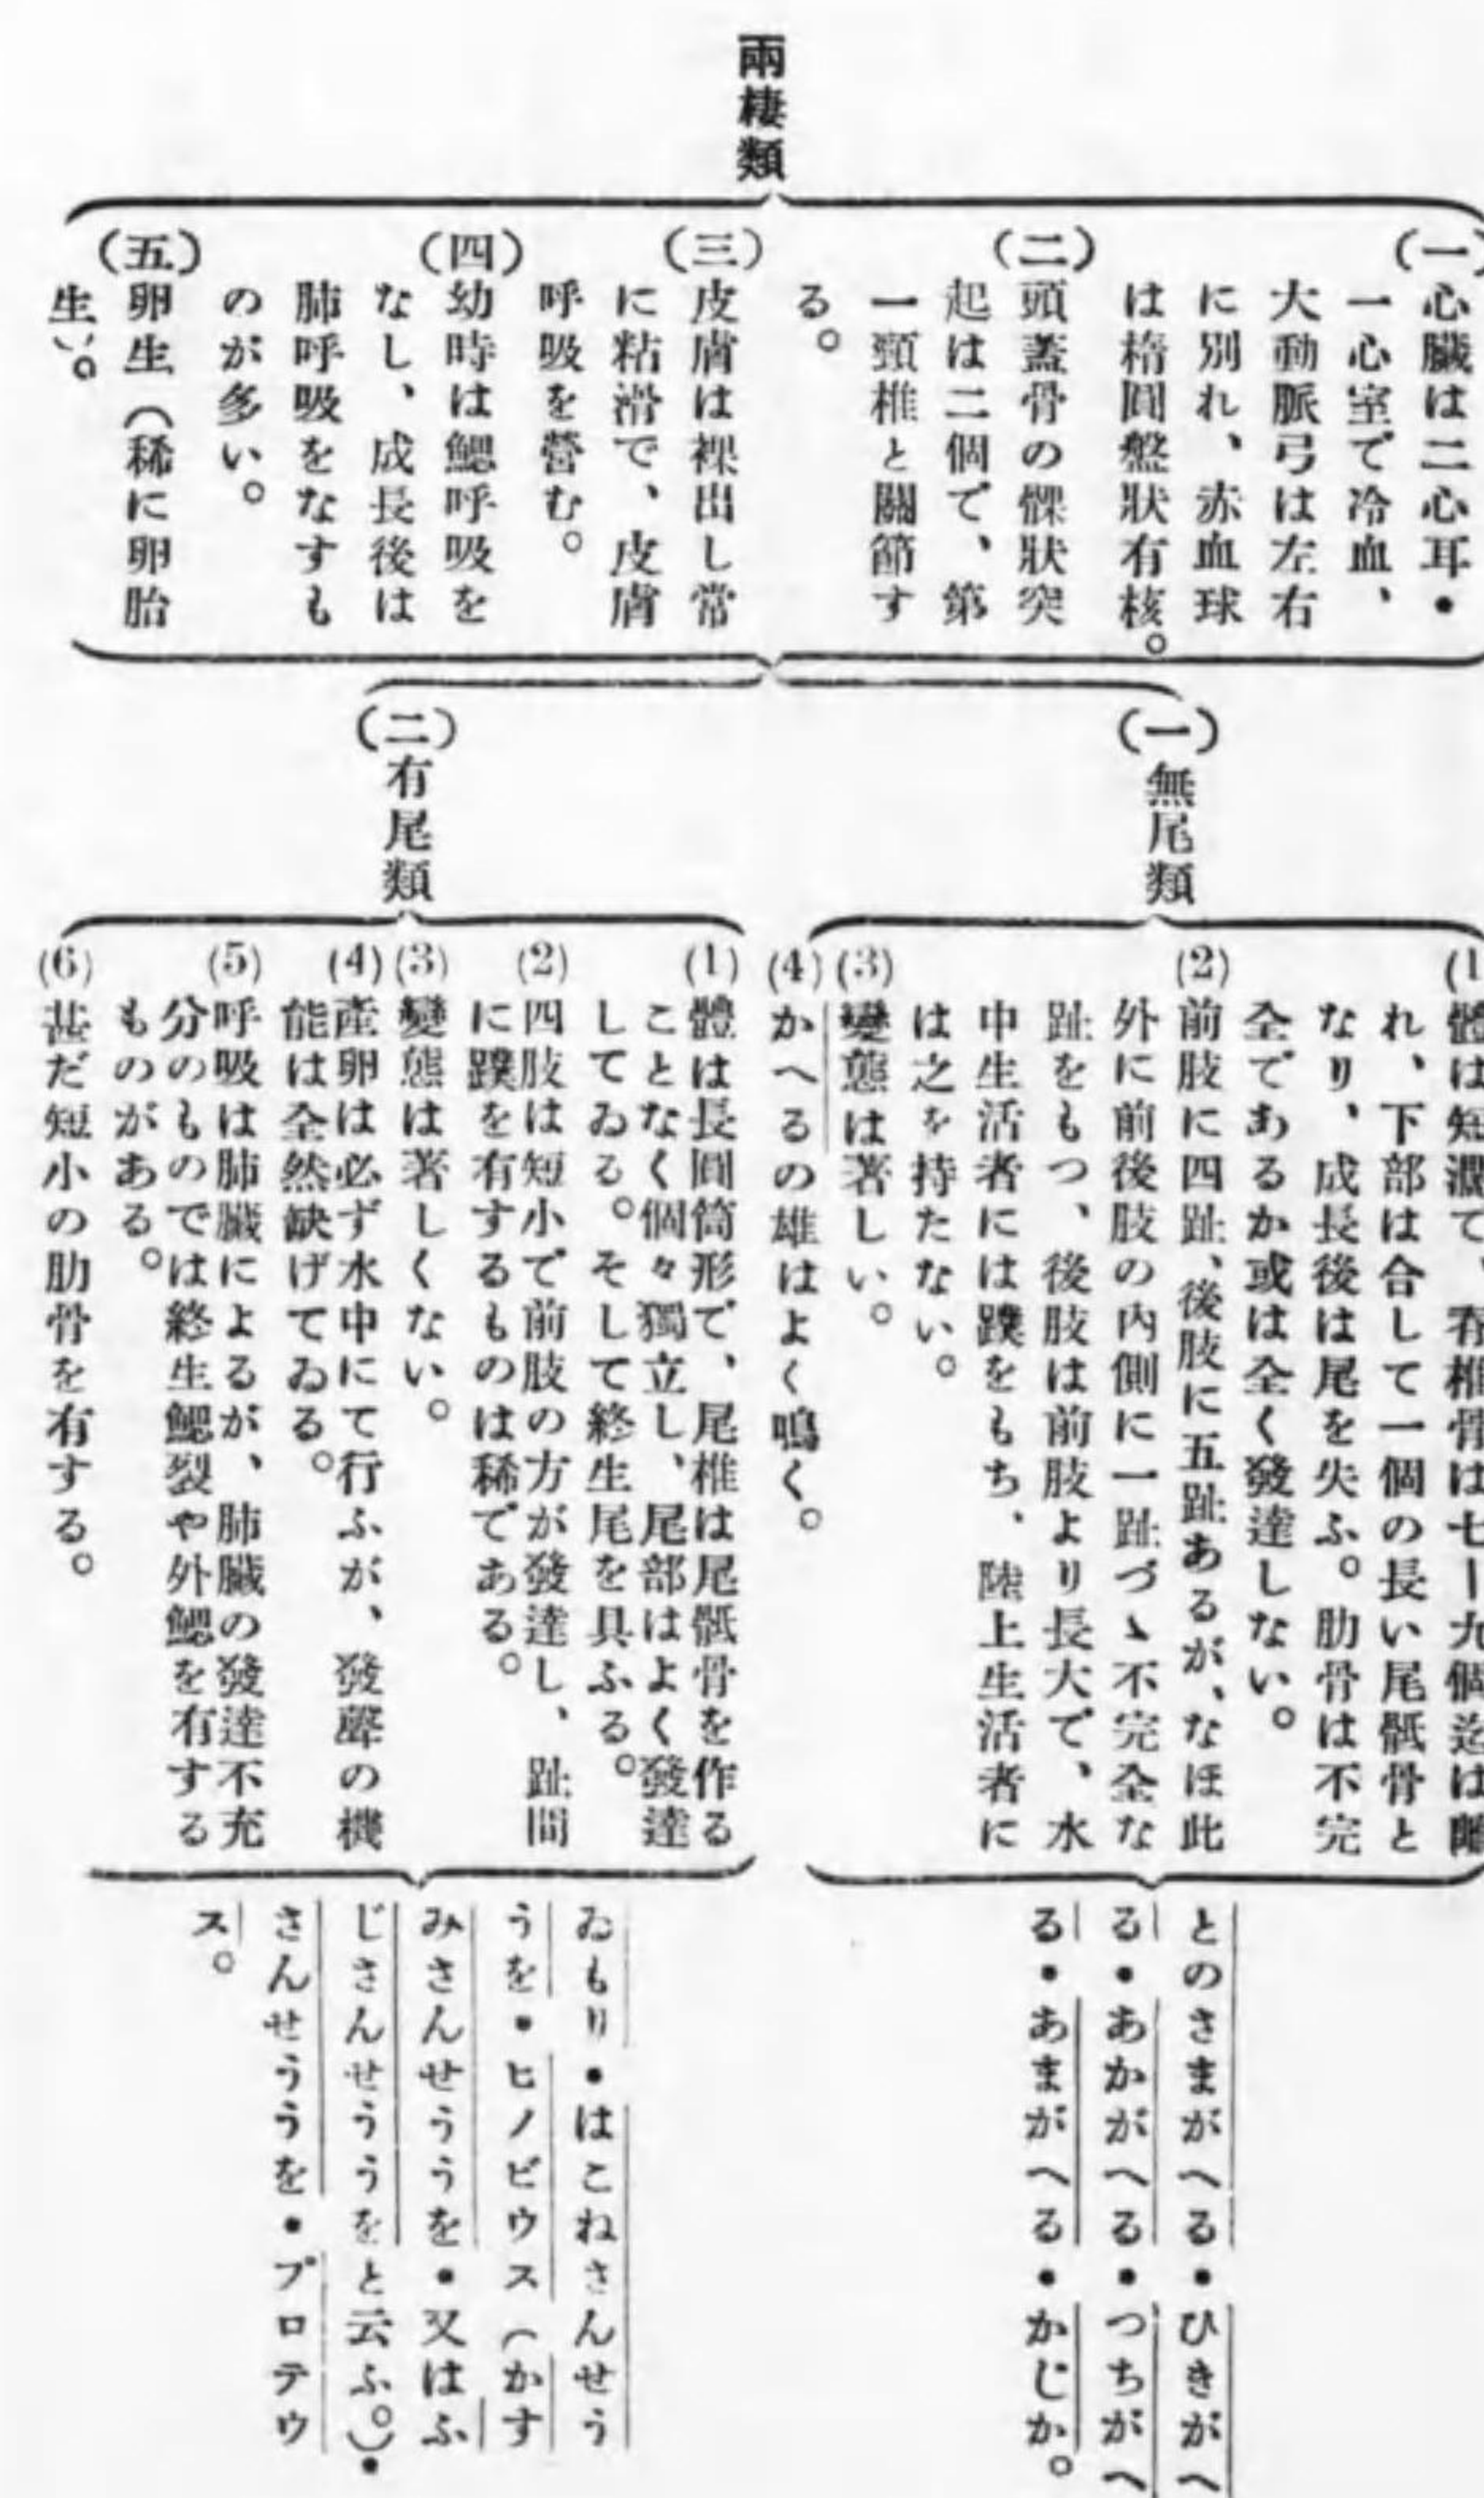 兩棲類
(一)心臟は二心耳・
一心室で冷血、
大動脈弓は左右
に別れ、赤血球
は楕圓盤狀有核。
(二)頭蓋骨の髁狀突
起は二個で、第
一頸椎と關節す
る。
(三)皮膚は裸出し常
に粘滑で、皮膚
呼吸を營む。
(四)幼時は鰓呼吸を
なし、成長後は
肺呼吸をなすも
のが多い。
(五)卵生（稀に卵胎
生）。
(一)無尾類
(1)體は短濶で、脊椎骨は七ー九個迄は離
れ、下部は合して一個の長い尾骶骨と
なり、成長後は尾を失ふ。肋骨は不完
全であるか或は全く發達しない。
(2)前肢に四趾、後肢に五趾あるが、なほ此
外に前後肢の內側に一趾づゝ不完全な
趾をもつ、後肢は前肢より長大で、水
中生活者には蹼をもち、陸上生活者に
は之を持たない。
(3)變態は著しい。
(4)かへるの雄はよく鳴く。
とのさまがへる・ひきがへ
る・あかがへる・つちがへ
る・あまがへる・かじか。
(二)有尾類
(1)體は長圓筒形で、尾椎は尾骶骨を作る
ことなく個々獨立し、尾部はよく發達
してゐる。そして終生尾を具ふる。
(2)四肢は短小で前肢の方が發達し、趾間
に蹼を有するものは稀である。
(3)變態は著しくない。
(4)產卵は必ず水中にて行ふが、發聲の機
能は全然缺げてゐる。
(5)呼吸は肺臟によるが、肺臟の發達不充
分のものでは終生鰓裂や外鰓を有する
ものがある。
(6)甚だ短小の肋骨を有する。
ゐもり・はこねさんせう
うを・ヒノビウス（かす
みさんせううを・又はふ
じさんせううをと云ふ。）・
さんせううを・プロテウ
ス。